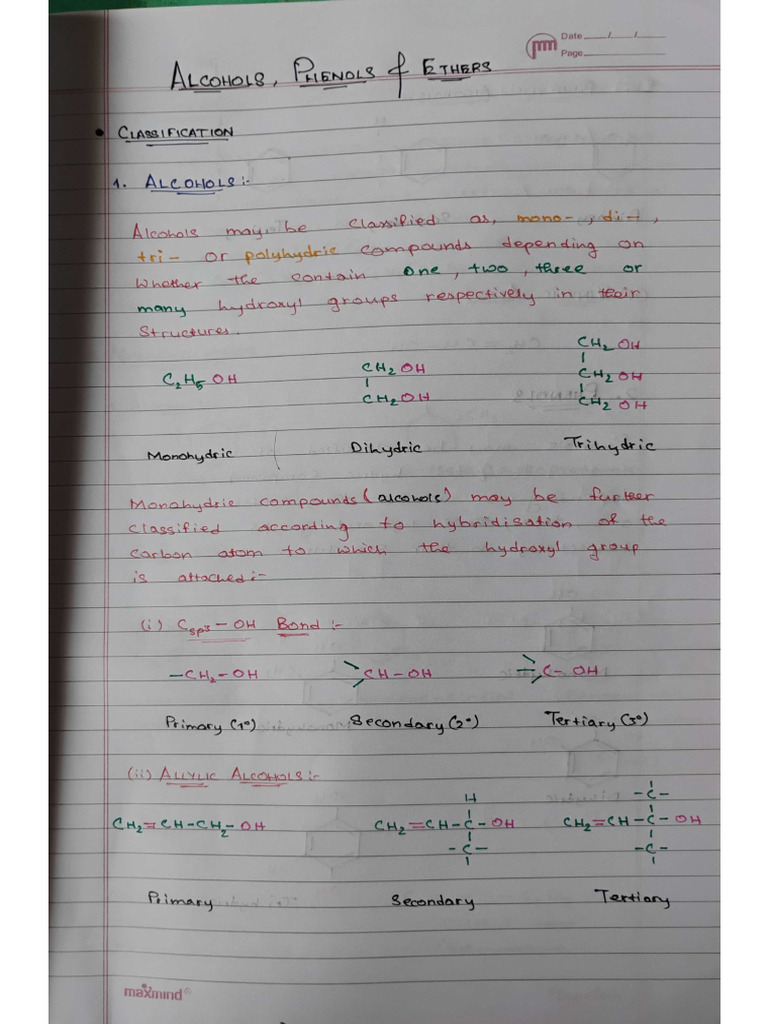 Date ___/___/___
Page ___
ALCOHOLS, PHENOLS & ETHERS
• CLASSIFICATION
1. ALCOHOLS:-
Alcohols may be classified as, mono-, di-,
tri- or polyhydric compounds depending on
whether the contain one, two, three or
many hydroxyl groups respectively in their
structures.
C₂H₅OH
CH₂OH
CH₂OH
CH₂OH
CH₂OH
CH₂OH
Monohydric Dihydric Trihydric
Monohydric compounds (alcohols) may be further
classified according to hybridisation of the
carbon atom to which the hydroxyl group
is attached:-
(i) Csp3-OH Bond :-
-CH₂-OH >CH-OH >C-OH
Primary (1°) Secondary (2°) Tertiary (3°)
(ii) ALLYLIC ALCOHOLS:-
CH₂=CH-CH₂-OH
H
CH₂=CH-C-OH
-C-
-C-
CH₂=CH-C-OH
-C-
Primary Secondary Tertiary
maxmind